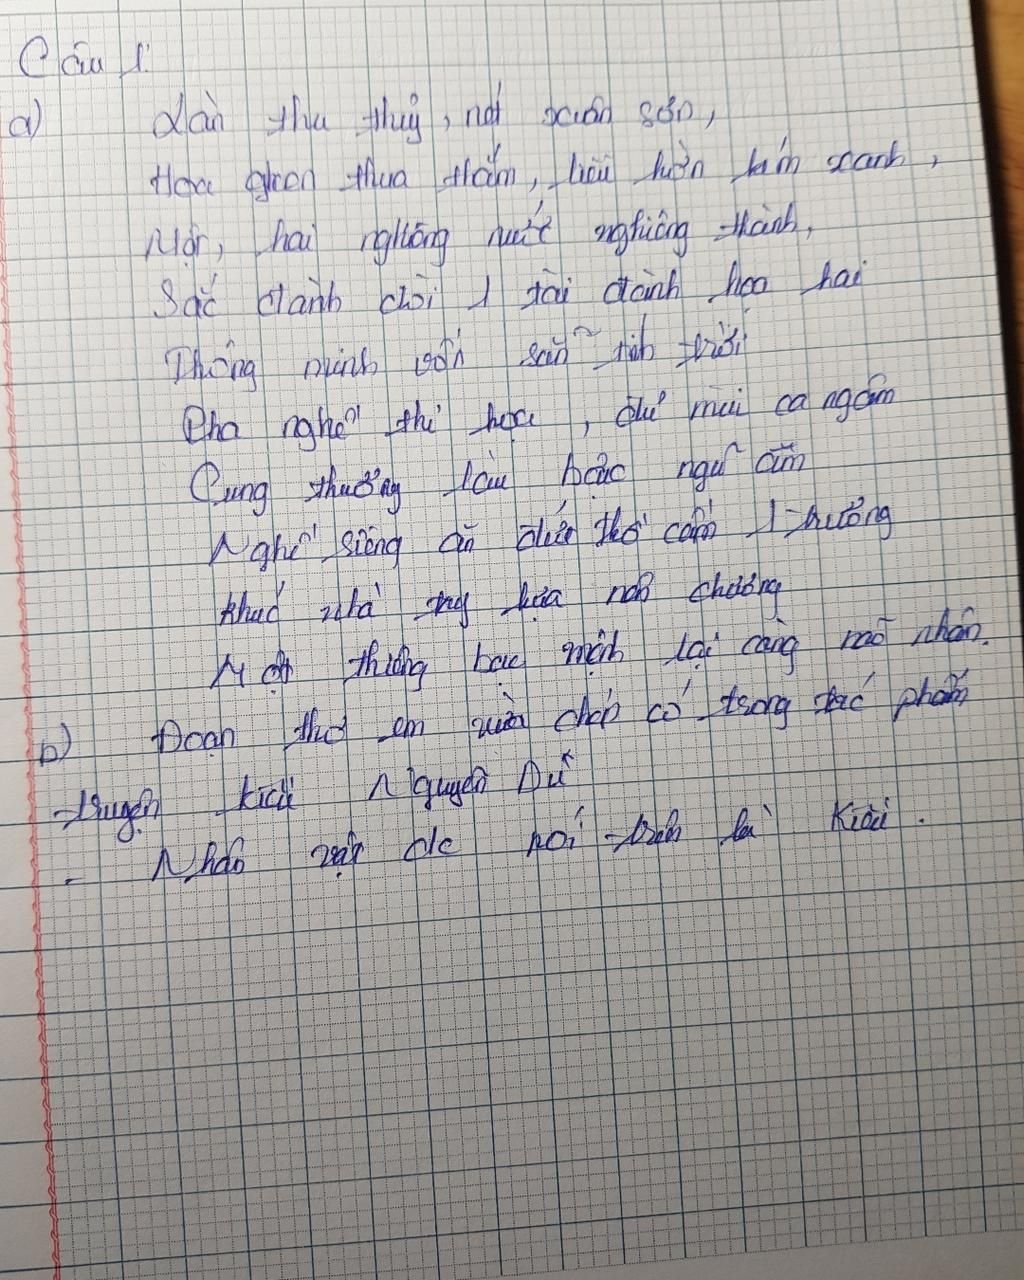 Câu 1:
a) Làn thu thuỷ, nét xuân sơn,
Hoa ghen thua thắm, liễu hờn kém xanh,
Một, hai nghiêng nước nghiêng thành,
Sắc đành đòi 1 tài đành hoạ hai
Thông minh vốn sẵn tính trời
Pha nghề thi hoạ, đủ mùi ca ngâm
Cung thương lầu bậc ngũ âm
Nghề riêng ăn đứt hồ cầm 1 trương
Khúc nhà tay lựa nên chương
Một thiêng bạc mệnh lại càng não nhân.
b) Đoạn thơ em vừa chép có trong tác phẩm
truyện kiều Nguyễn Du
- Nhân vật đc nói trên là Kiều.